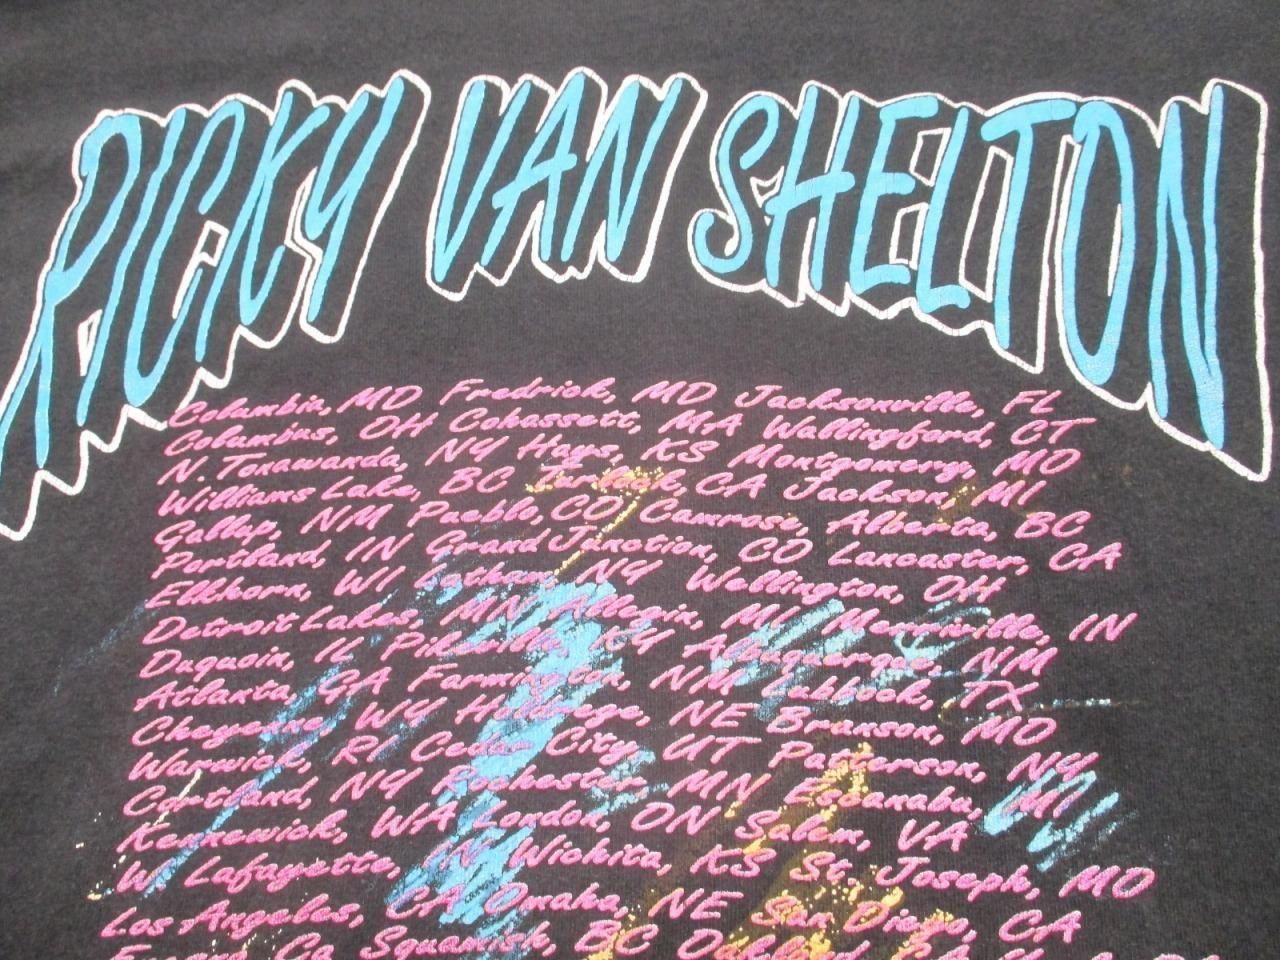 RICKY VAN SHELTON
Columbia, MD Fredrick, MD Jacksonville, FL
Columbus, OH Cohassett, MA Wallingford, CT
N. Tonawanda, NY Hays, KS Montgomery, MO
Williams Lake, BC Turlock, CA Jackson, MI
Gallup, NM Pueblo, CO Camrose, Alberta, BC
Portland, IN Grand Junction, CO Lancaster, CA
Elkhorn, WI Latham, NY Wellington, OH
Detroit Lakes, MN Allegin, MI Merriville, IN
Duquoin, IL Pikeville, KY Albuquerque, NM
Atlanta, GA Farmington, NM Lubbock, TX
Cheyenne, WY Holdrege, NE Branson, MO
Warwick, RI Cedar City, UT Patterson, NY
Cortland, NY Rochester, MN Escanaba, MI
Kennewick, WA London, ON Salem, VA
W. Lafayette, IN Wichita, KS St. Joseph, MO
Los Angeles, CA Omaha, NE San Diego, CA
Squamish, BC